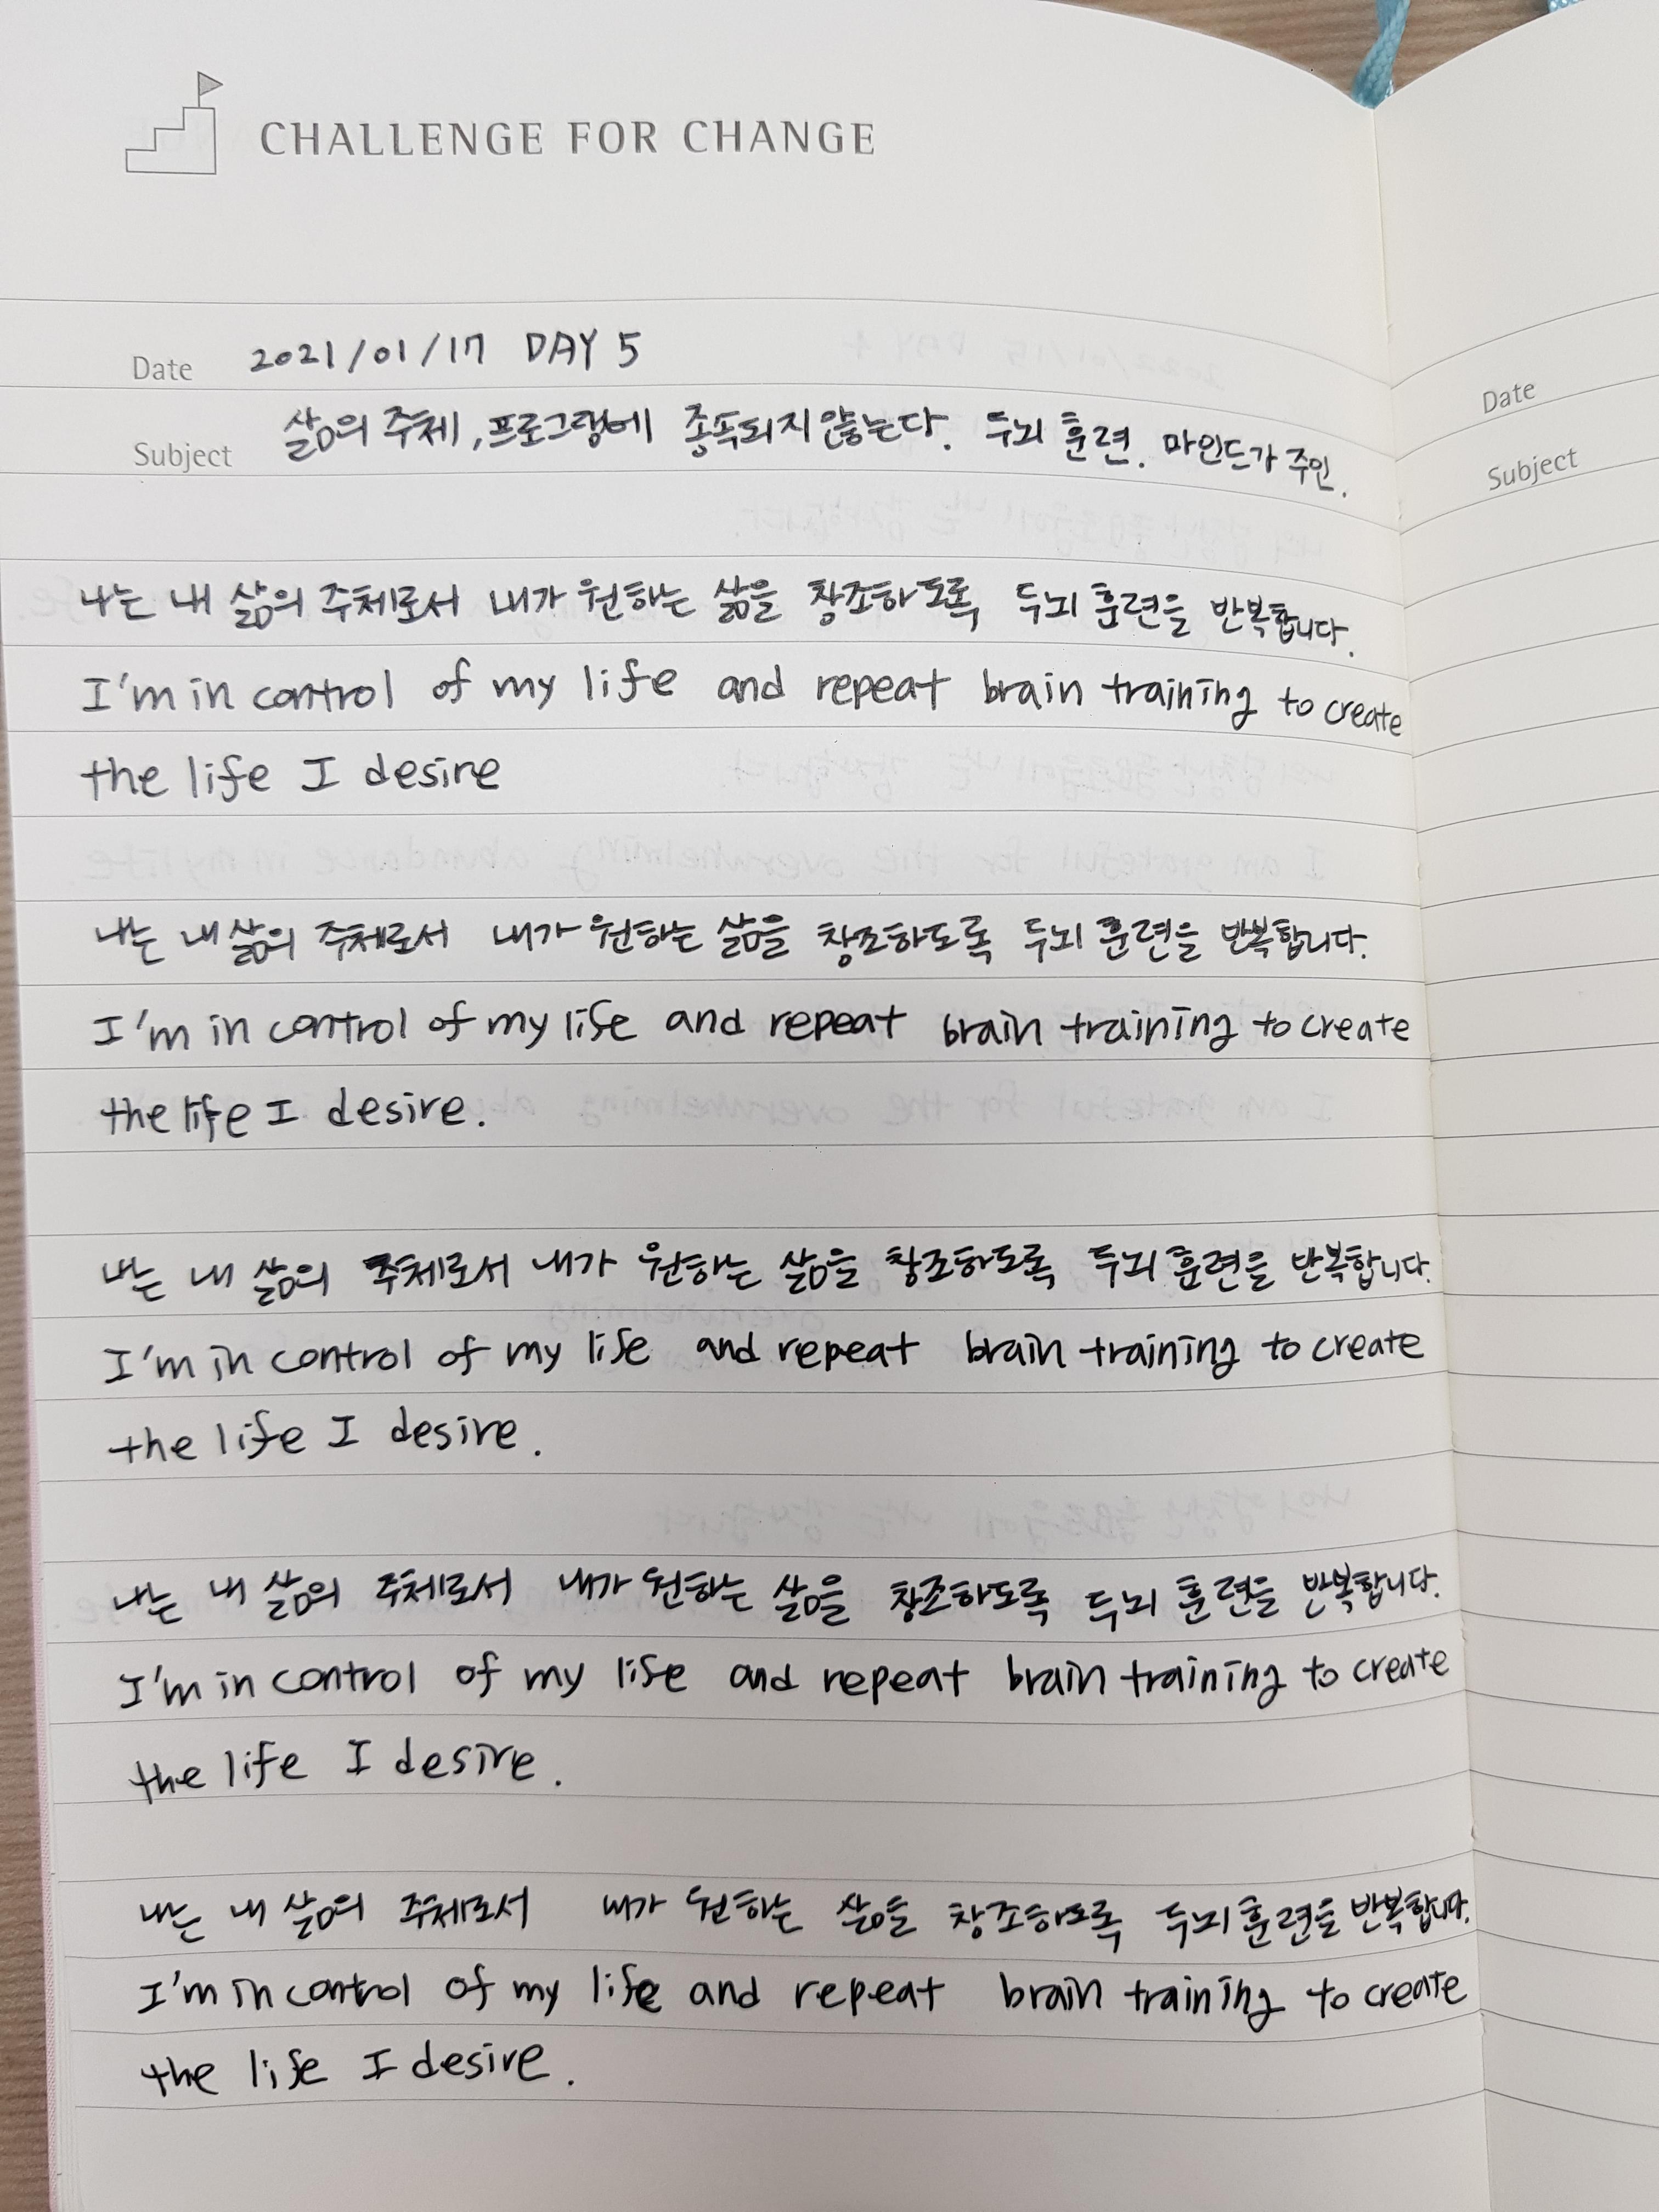 CHALLENGE FOR CHANGE
Date 2021/01/17 DAY 5
Subject 삶의 주체, 프로그램에 종속되지 않는다. 두뇌 훈련. 마인드가 주인.
Date
Subject
나는 내 삶의 주체로서 내가 원하는 삶을 창조하도록 두뇌 훈련을 반복합니다.
I'm in control of my life and repeat brain training to create
the life I desire
나는 내 삶의 주체로서 내가 원하는 삶을 창조하도록 두뇌 훈련을 반복합니다.
I'm in control of my life and repeat brain training to create
the life I desire.
나는 내 삶의 주체로서 내가 원하는 삶을 창조하도록 두뇌 훈련을 반복합니다.
I'm in control of my life and repeat brain training to create
the life I desire.
나는 내 삶의 주체로서 내가 원하는 삶을 창조하도록 두뇌 훈련을 반복합니다.
I'm in control of my life and repeat brain training to create
the life I desire.
나는 내 삶의 주체로서 내가 원하는 삶을 창조하도록 두뇌 훈련을 반복합니다.
I'm in control of my life and repeat brain training to create
the life I desire.